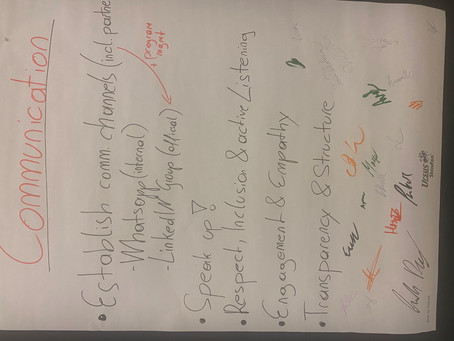 Communication
• Establish comm. channels (incl. partne
+ program
mgmt
- Whatsapp (internal)
- LinkedIN Group (offical)
• Speak up!
• Respect, Inclusion & active Listening
• Engagement & Empathy
• Transparency & Structure